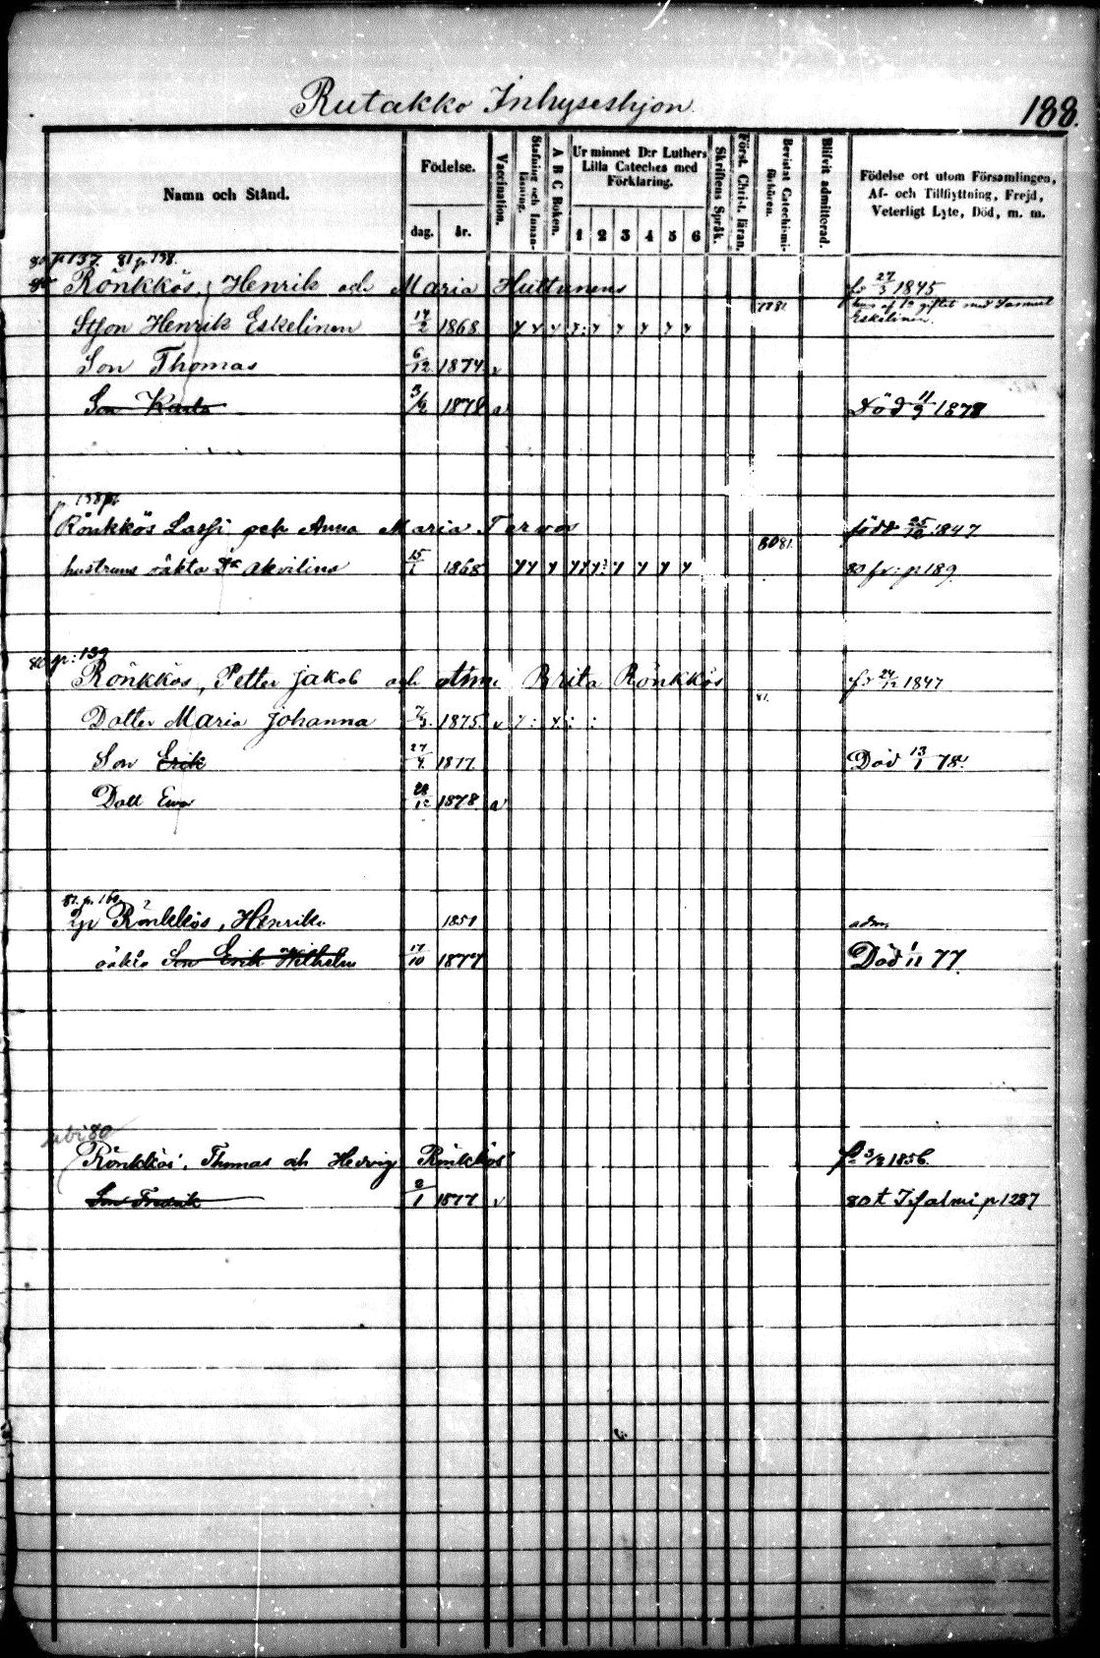 Rutakko Inhyseshjon 188.
Namn och Stånd.
Födelse.
dag. år.
Vaccination.
Stafning och Innanläsning.
A B C Boken.
Ur minnet D:r Luthers Lilla Cateches med Förklaring.
1 2 3 4 5 6
Skriftens Språk.
Först. Christ. läran.
Bevistat Catechismiförhören.
Blifvit admitterad.
Födelse ort utom Församlingen, Af- och Tillflyttning, Frejd, Veterligt Lyte, Död, m. m.
p 137. 81 p. 138.
Rönkkös, Henrik och Maria Huttunens 27/3 1845
Henrik Eskelinen 14/2 1868 giftet med Samuel Eskelinen.
Son Thomas 6/12 1874 v
Son 3/2 1878 v Död 11/9 1878
138
Rönkkös Lassi och Anna Maria Tervos född 25/12 1847
hustruns oäkta Akvilina 15/1 1868 80 fr: p 189.
80 p: 139
Rönkkös, Petter Jakob och Anna Brita Rönkkös 24/12 1847
Dotter Maria Johanna 7/3 1875 v
Son Erik 27/4 1877 Död 13/1 78
Dott Eva 28/12 1878 v
81. p. 160
Rönkkös, Henrika 1851 adm.
oäkta Son Erik Wilhelm 17/10 1877 Död 1/11 77.
80
Rönkkös, Thomas och Hedvig Rönkkös 3/3 1856.
Son Fredrik 2/1 1877 v 80 t Idsalmi p 1287